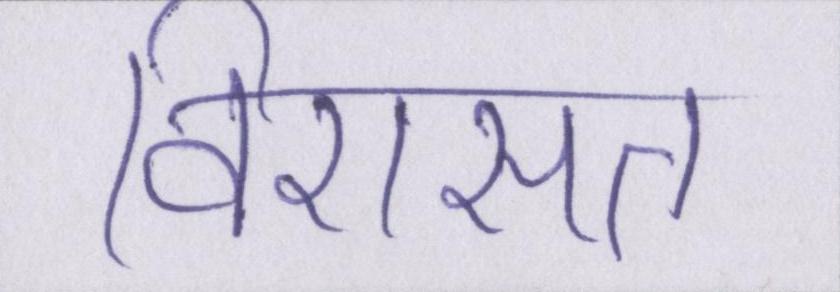 विरासत